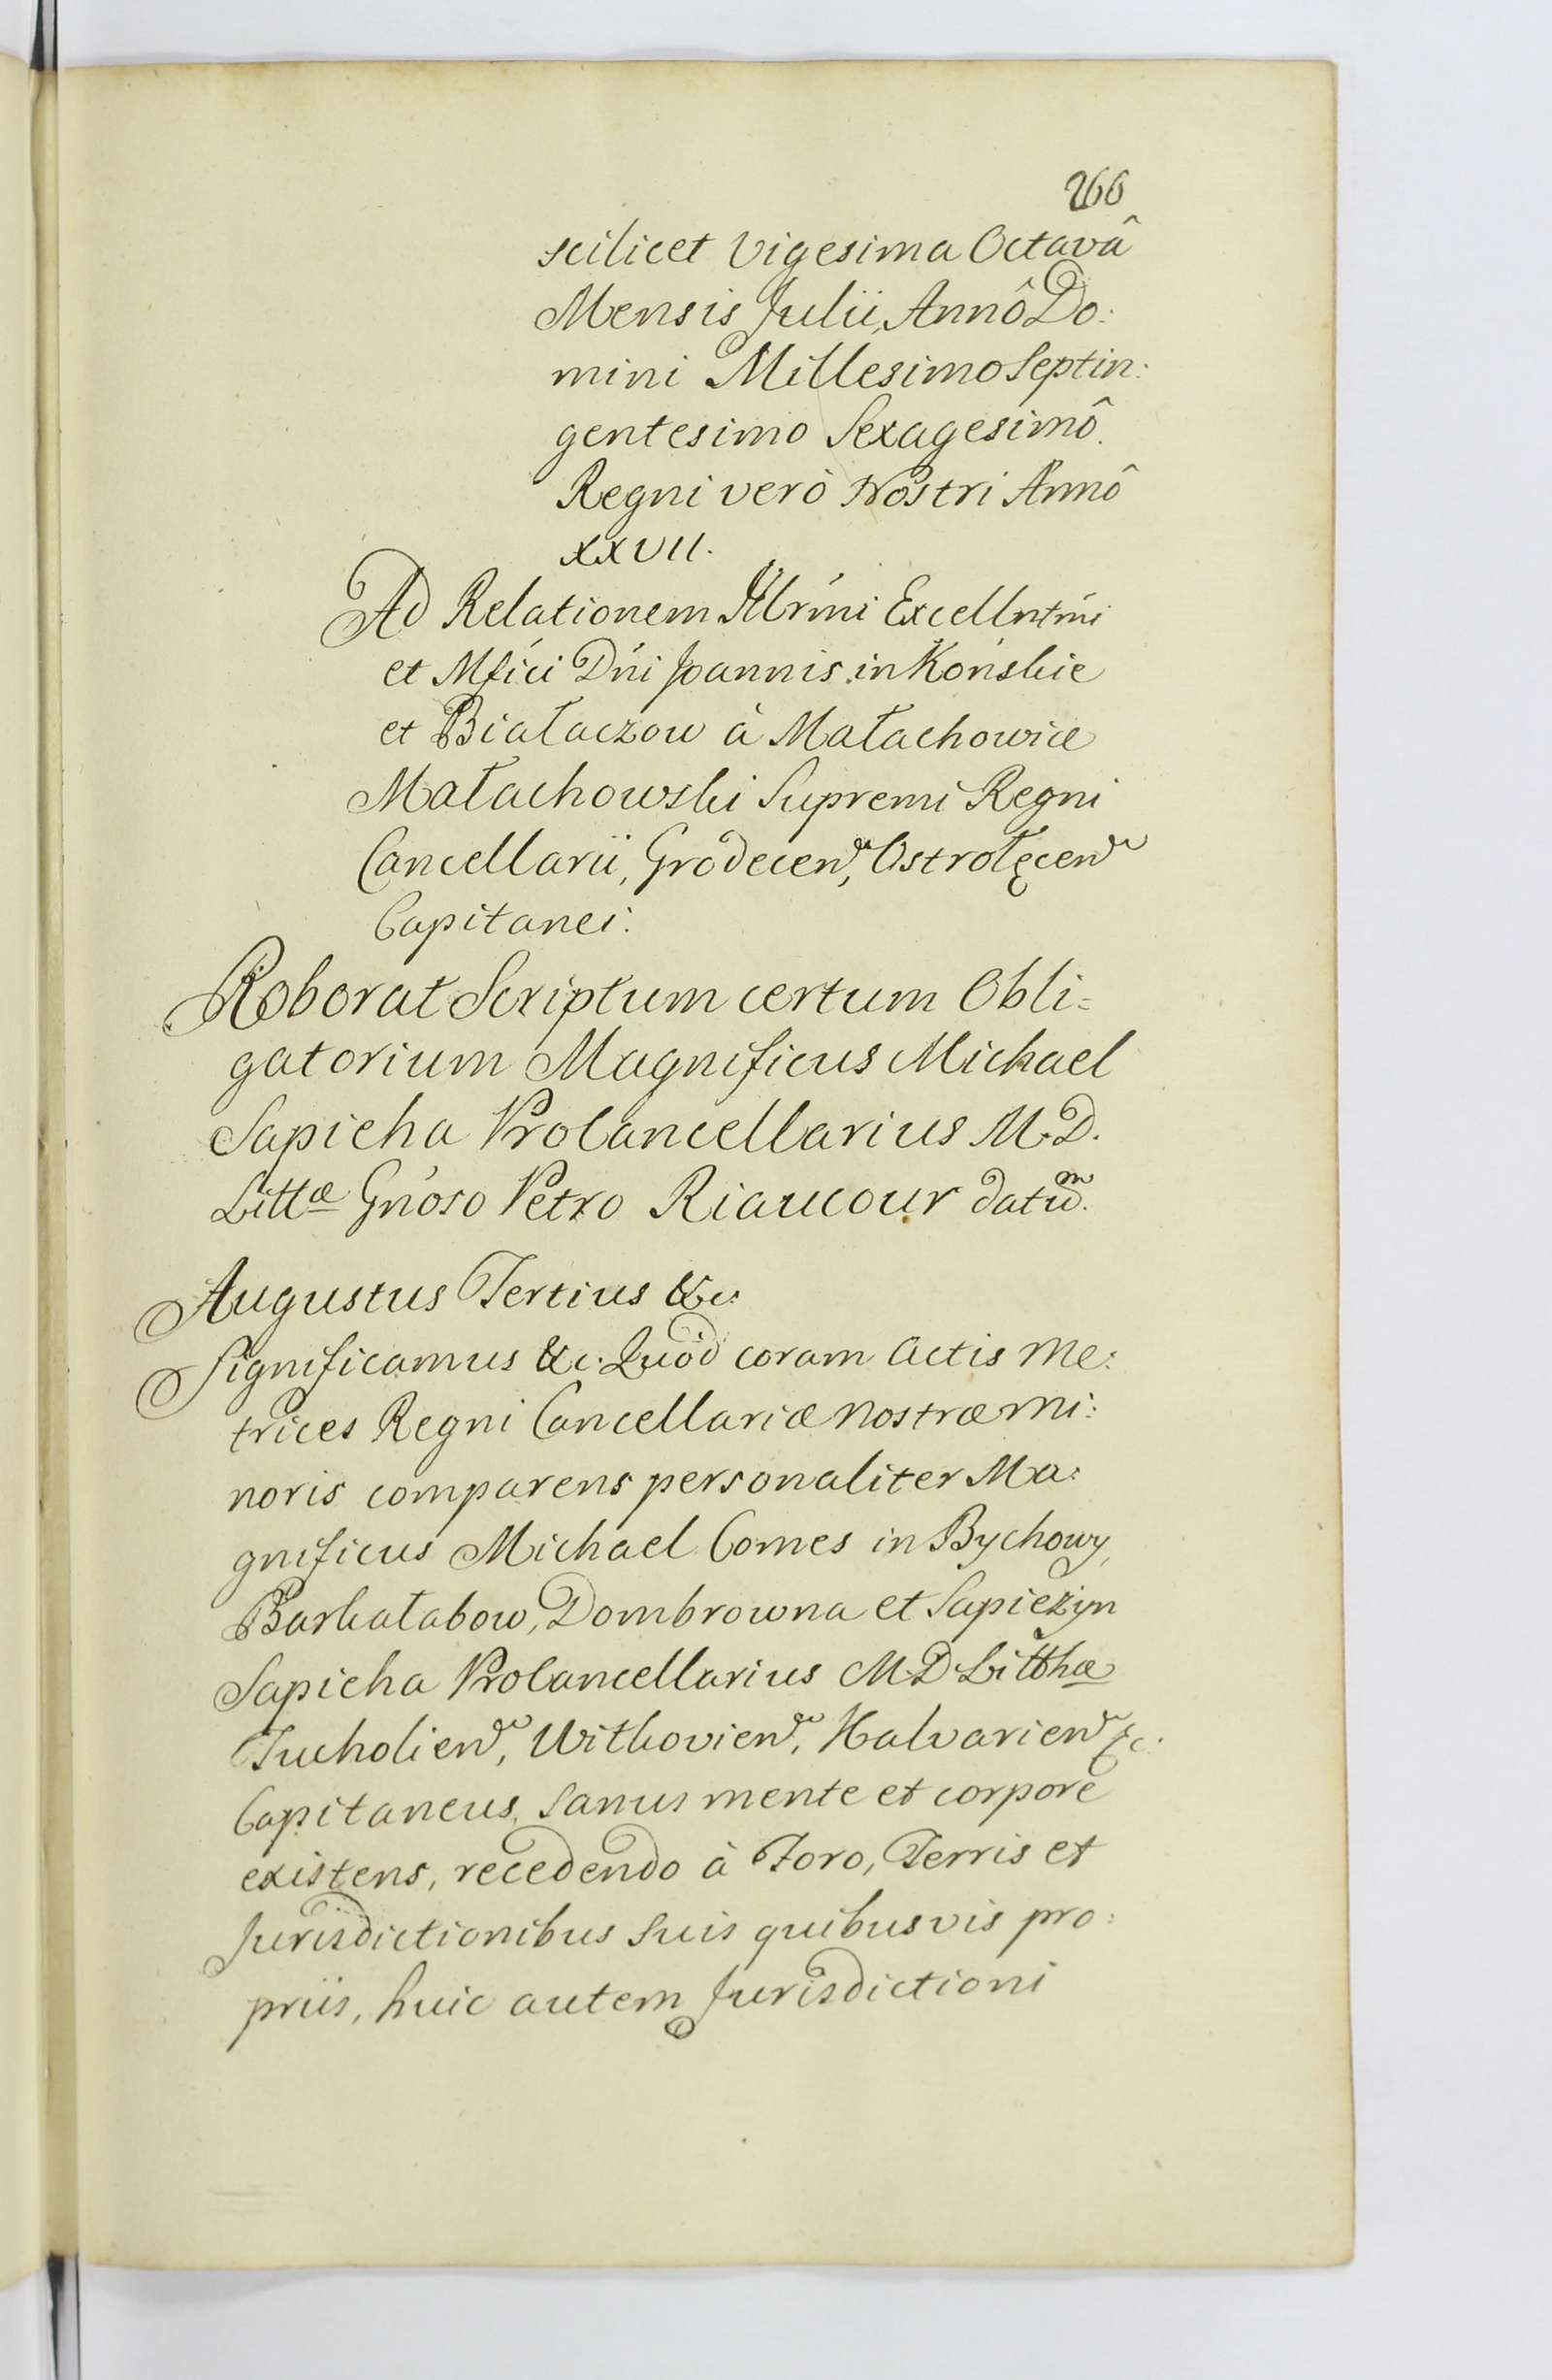 266
scilicet Vigesima Octavâ
Mensis Julii, Annô Do:
mini Millesimo Septin:
gentesimo Sexagesimô.
Regni verò Nostri Annô
XXVII.
Ad Relationem Illrḿi Excellntḿi
et Mfíci Dńi Joannis in Końskie
et Białaczow à Małachowice
Małachowski Supremi Regni
Cancellarii, Grodecen, Ostrołęcen
Capitanei:
Roborat Scriptum certum Obli=
gatorium Magnificus Michael
Sapieha ProCancellarius M.D.
Littæ Gńoso Petro Riaucour datum.
Augustus Tertius &c:
Significamus &c. Quòd coram Actis Me:
trices Regni Cancellariæ nostræ mi:
noris comparens personaliter Ma:
gnificus Michael Comes in Bychowy,
Barkałabow, Dombrowna et Sapieżyn
Sapieha ProCancellarius M.D. Litthæ
Tucholien, Witkovien, Kalvarien &c:
Capitaneus, sanus mente et corpore
existens, recedendo à Foro, Terris et
Jurisdictionibus suis quibusvis pro:
priis, huic autem Jurisdictioni